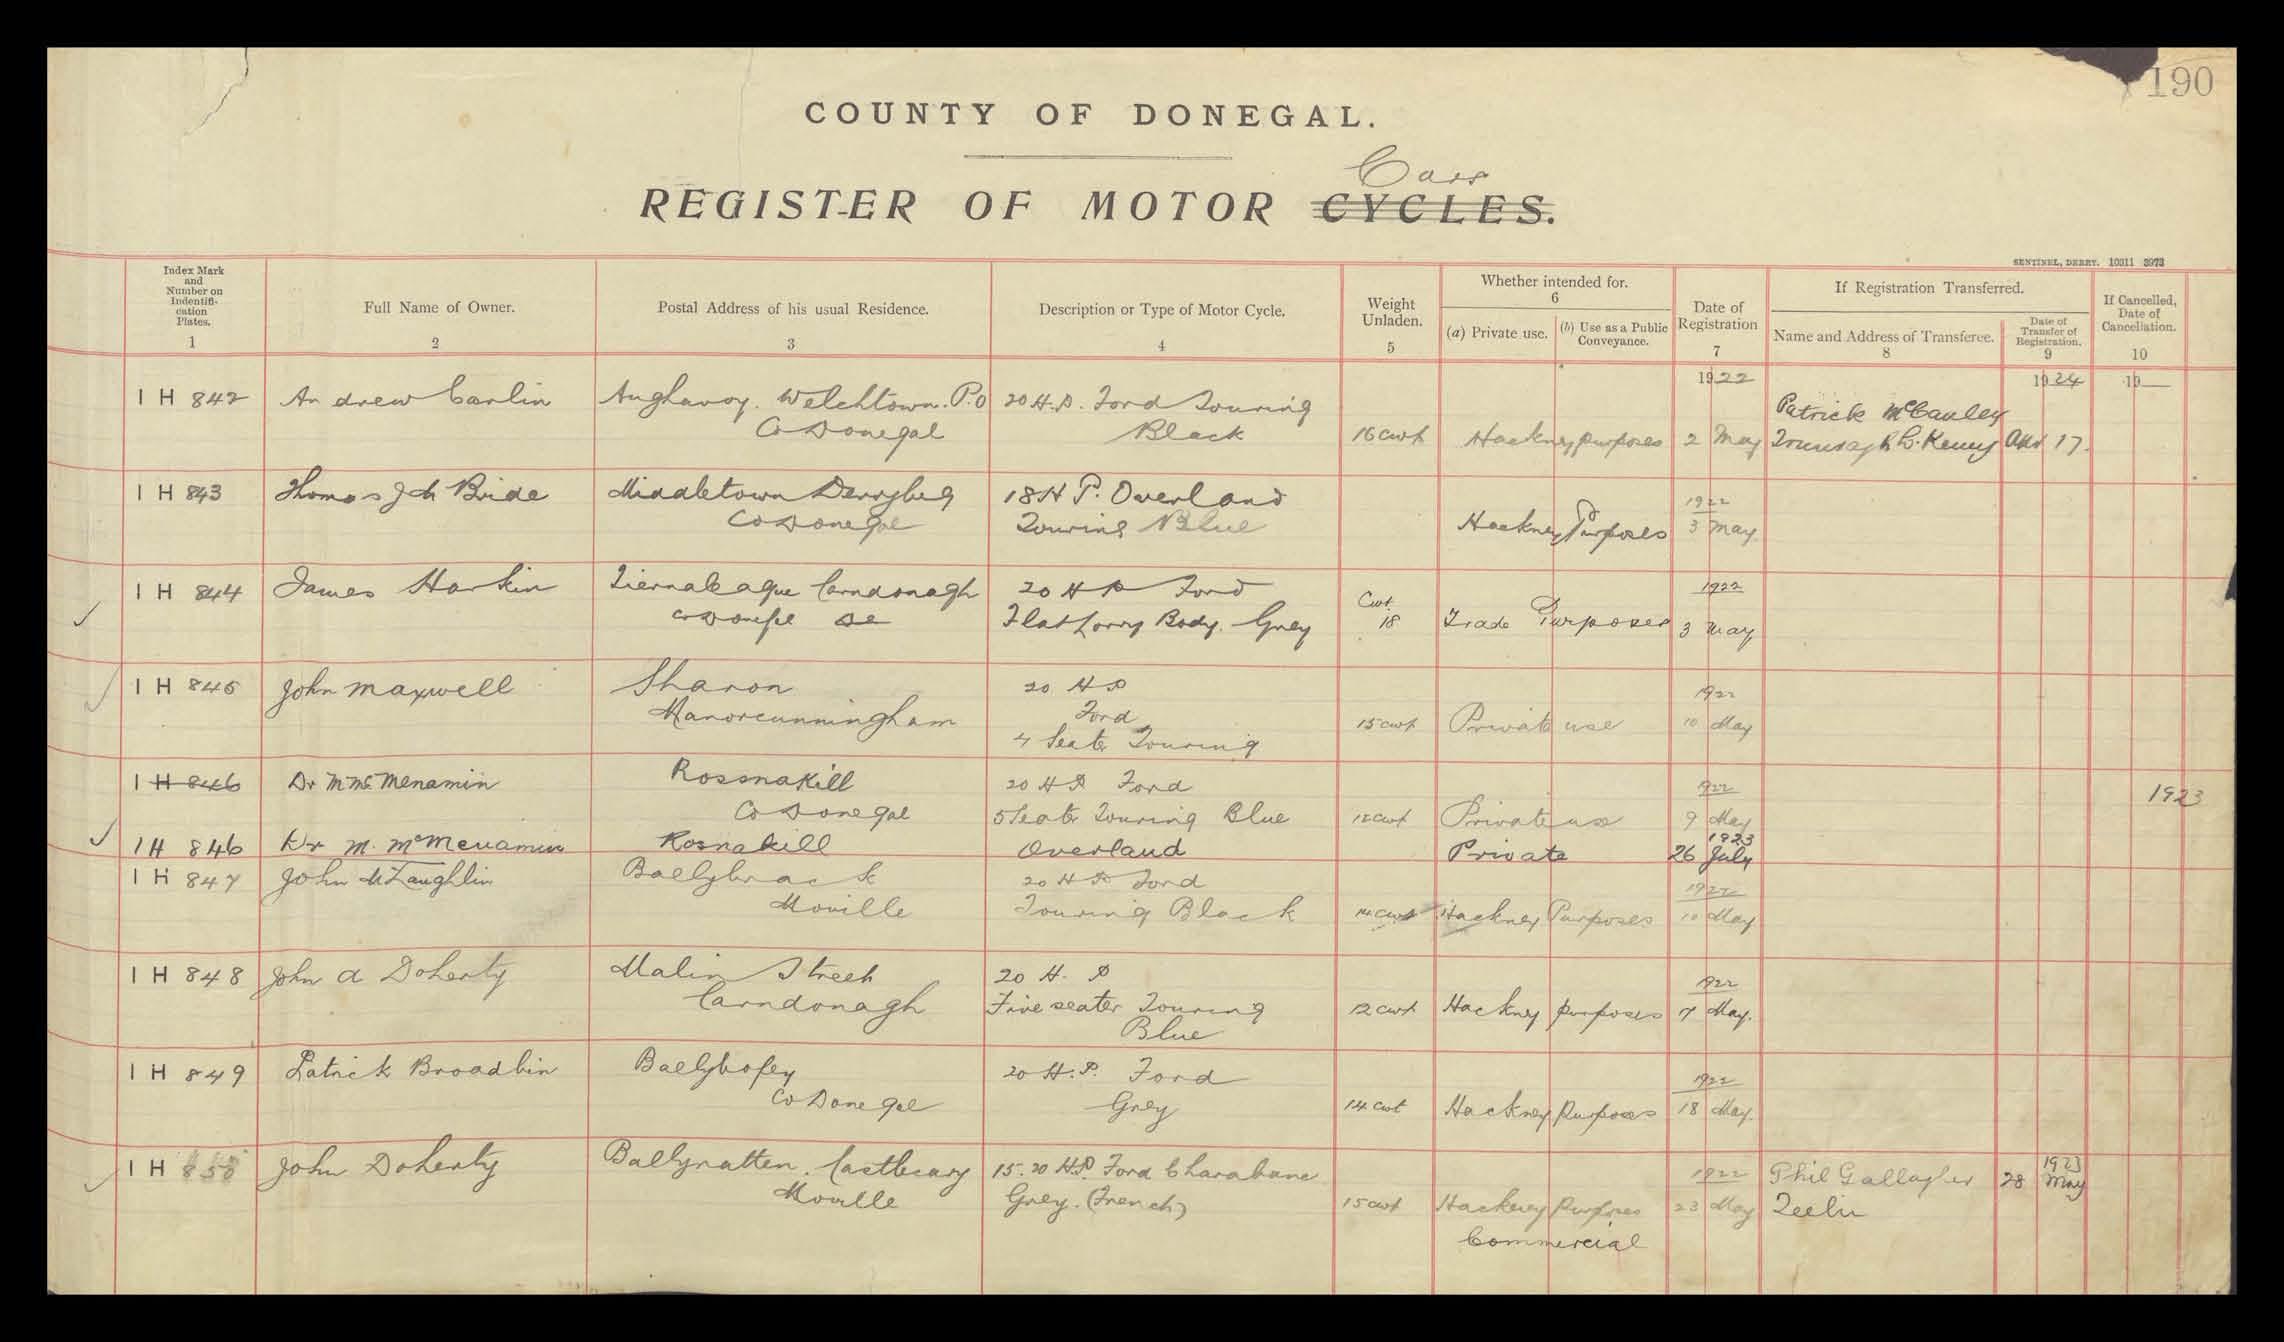 190
COUNTY OF DONEGAL.
Cars
REGISTER OF MOTOR CYCLES.
SENTINEL, DERRY. 10311 3973
Index Mark and Number on Indentifi-cation Plates. 1
Full Name of Owner. 2
Postal Address of his usual Residence. 3
Description or Type of Motor Cycle. 4
Weight Unladen. 5
Whether intended for. 6
(a) Private use.
(b) Use as a Public Conveyance.
Date of Registration 7
If Registration Transferred.
Name and Address of Transferee. 8
Date of Transfer of Registration. 9
If Cancelled, Date of Cancellation. 10
1922 1924 19
IH 842 Andrew Carlin Aughavoy. Welchtown. P.O 20 H.P. Ford Touring Patrick McCauley
Co Donegal Black 16 cwt Hackney purposes 2 May 17.
IH 843 Thomas J Mc Bride Middletown Derrybeg 18 H P. Overland 1922
Co Donegal Touring Blue Hackney Purposes 3 May
IH 844 James Harkin Carndonagh 20 H P Ford Cwt 1922
Flat Lorry Body. Grey 18 Trade Purposes 3 May
IH 845 John Maxwell Sharon 20 H P 1922
Manorcunningham Ford 15 cwt Private use 10 May
4 Seater Touring
IH 846 Dr M McMenamin Rossnakill 20 H P Ford 1922 1923
Co Donegal 5 Seater Touring Blue 12 cwt Private use 9 May
1923
IH 846 Dr M. McMenamin Rosnakill Overland Private 26 July
IH 847 John McLaughlin Ballybrack 20 H P Ford 1922
Moville Touring Black 14 cwt Hackney Purposes 10 May
IH 848 John A Doherty Malin Street 20 H. P 1922
Carndonagh Five seater Touring 12 cwt Hackney purposes 7 May.
Blue
IH 849 Patrick Broadbin Ballybofey 20 H.P. Ford 1922
Co Donegal Grey 14 cwt Hackney purposes 18 May.
IH 850 John Doherty Ballyratten. Castlecary 15.20 H.P. Ford Charabanc 1922 Phil Gallagher 28 1923 May
Moville Grey. (French) 15 cwt Hackney Purposes 23 May Teelin
Commercial